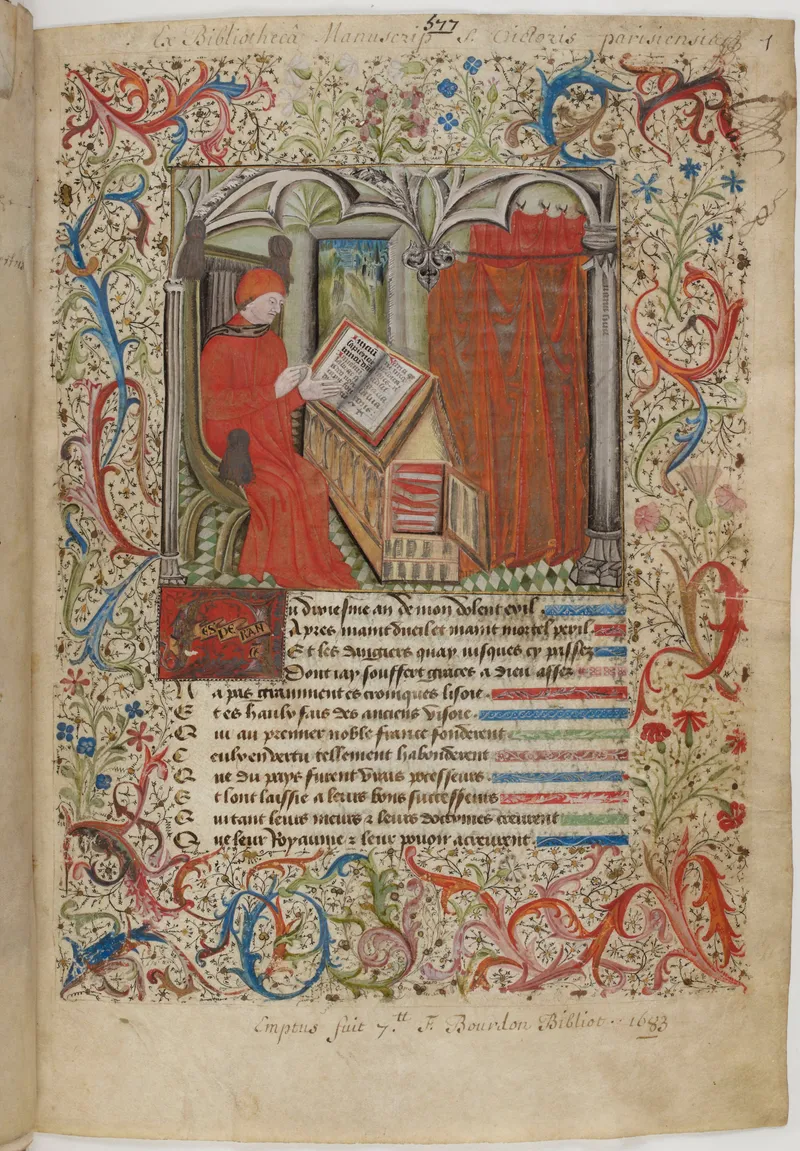 577
Ex Bibliothecâ Manuscrip S. Victoris parisiensis
1
u dixiesme an de mon dolent exil
Apres maint dueil et maint mortel peril
Et les dangiers quay iusques cy passez
Dont iay souffert graces a dieu assez
N a pas gramment es croniques lisoie
E t es haulx fais des anciens visoie
Q ui au premier noble france fonderent
C eulx en vertu tellement habonderent
Q ue du pays furent vrais possesseurs
E t lont laissie a leurs bons successeurs
Q ui tant leurs meurs & leurs doctrines creurent
Q ue leur Royaume & leur pouoir acreurent
Emptus fuit 7.tt F. Bourdon Bibliot. 1683